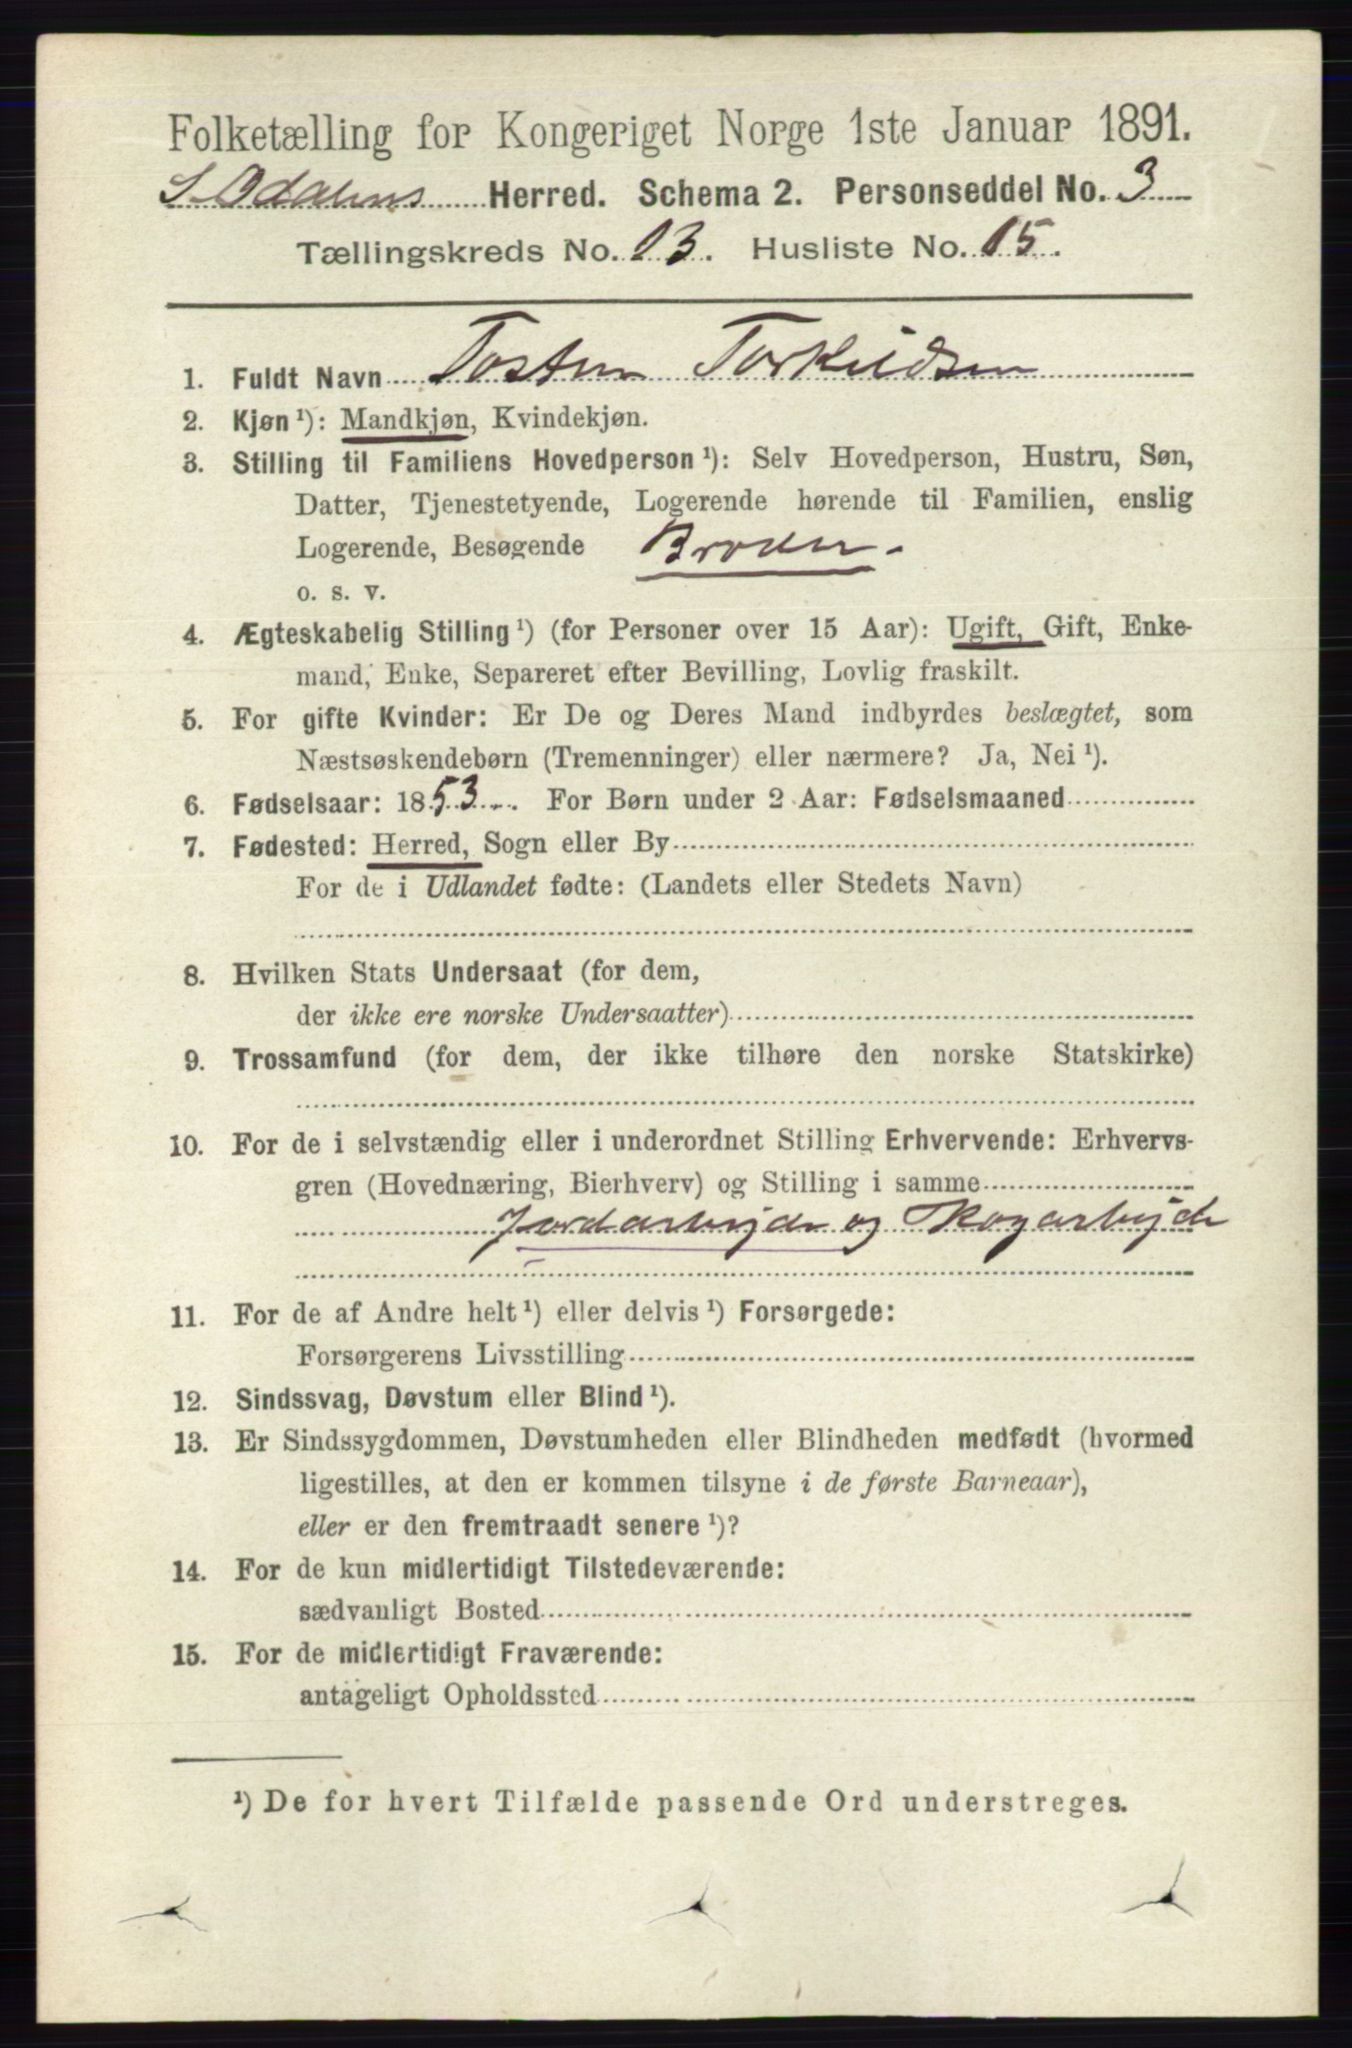 Folketælling for Kongeriget Norge 1ste Januar 1891.
S. Odalens Herred. Schema 2. Personseddel No. 3
Tællingskreds No. 13. Husliste No. 15.
1. Fuldt Navn Tosten Torkildsen
2. Kjøn ¹): Mandkjøn, Kvindekjøn.
3. Stilling til Familiens Hovedperson ¹): Selv Hovedperson, Hustru, Søn,
Datter, Tjenestetyende, Logerende hørende til Familien, enslig
Logerende, Besøgende Broder.
o. s. v.
4. Ægteskabelig Stilling ¹) (for Personer over 15 Aar): Ugift, Gift, Enke-
mand, Enke, Separeret efter Bevilling, Lovlig fraskilt.
5. For gifte Kvinder: Er De og Deres Mand indbyrdes beslægtet, som
Næstsøskendebørn (Tremenninger) eller nærmere? Ja, Nei ¹).
6. Fødselsaar: 1853. For Børn under 2 Aar: Fødselsmaaned
7. Fødested: Herred, Sogn eller By
For de i Udlandet fødte: (Landets eller Stedets Navn)
8. Hvilken Stats Undersaat (for dem,
der ikke ere norske Undersaatter)
9. Trossamfund (for dem, der ikke tilhøre den norske Statskirke)
10. For de i selvstændig eller i underordnet Stilling Erhvervende: Erhvervs-
gren (Hovednæring, Bierhverv) og Stilling i samme
Jordarbejde og Skogarbejde
11. For de af Andre helt ¹) eller delvis ¹) Forsørgede:
Forsørgerens Livsstilling
12. Sindssvag, Døvstum eller Blind ¹).
13. Er Sindssygdommen, Døvstumheden eller Blindheden medfødt (hvormed
ligestilles, at den er kommen tilsyne i de første Barneaar),
eller er den fremtraadt senere ¹)?
14. For de kun midlertidigt Tilstedeværende:
sædvanligt Bosted
15. For de midlertidigt Fraværende:
antageligt Opholdssted
¹) De for hvert Tilfælde passende Ord understreges.